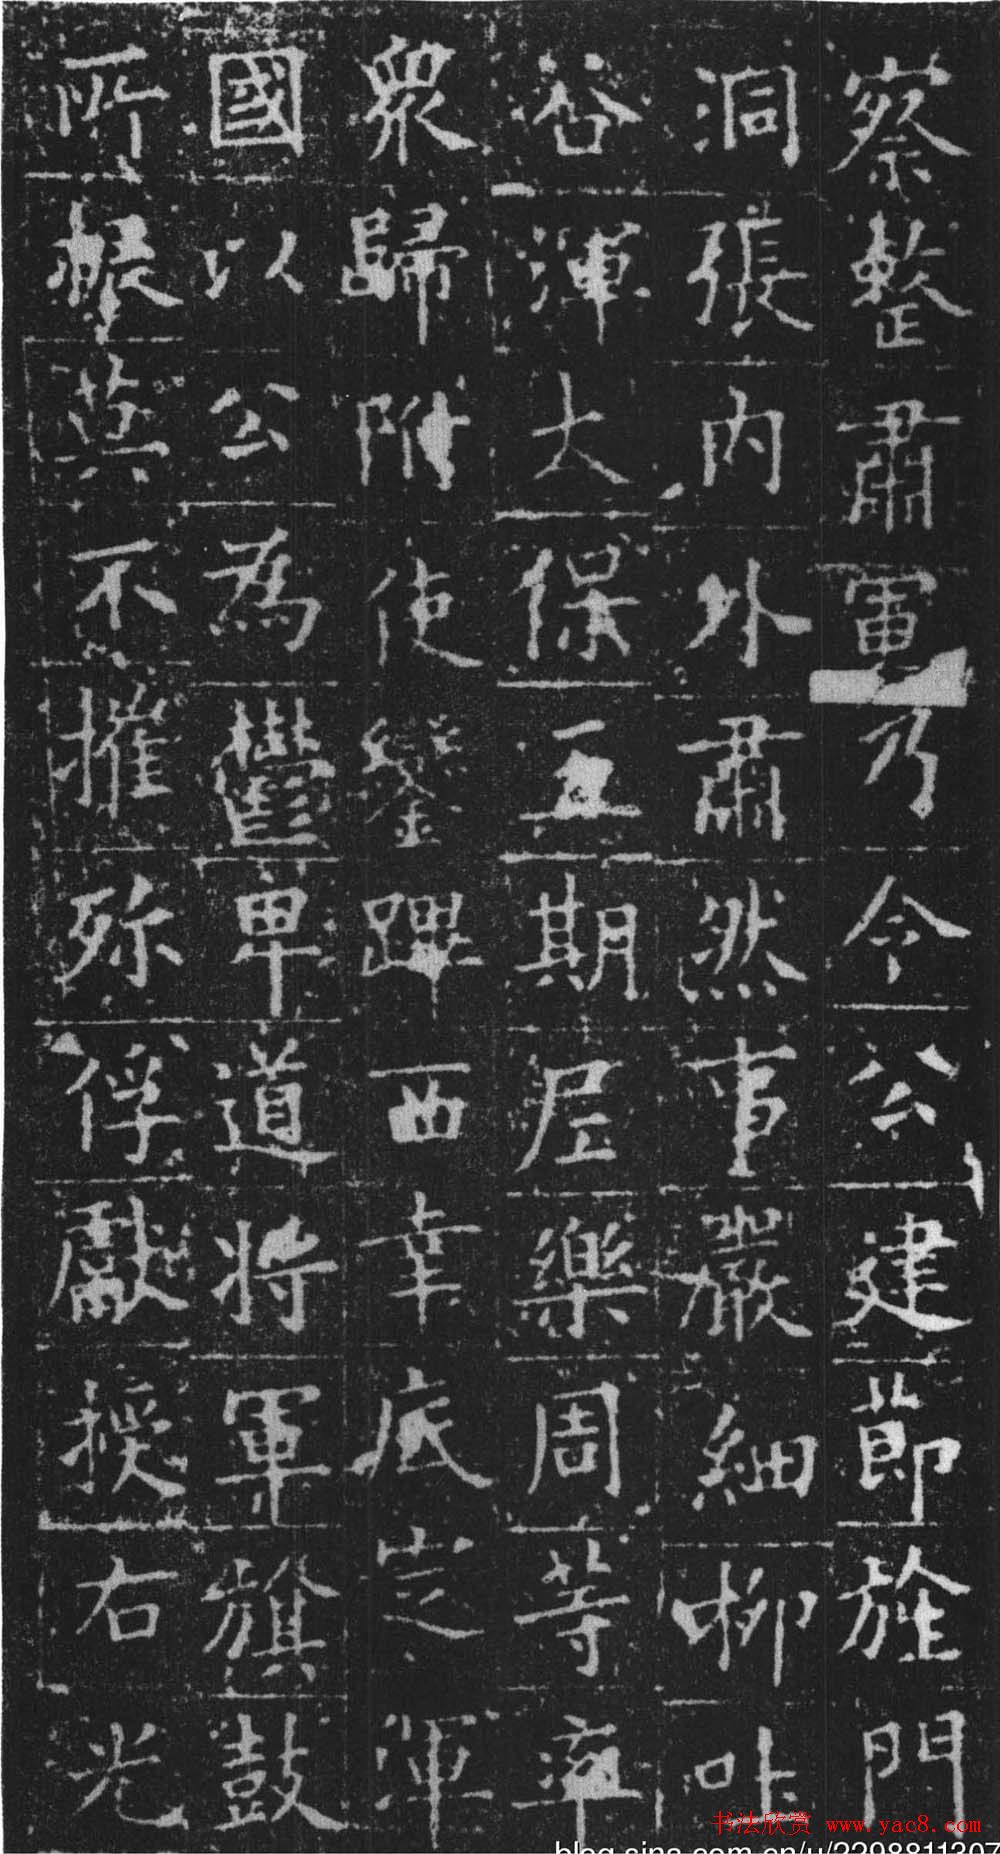 察整肅軍乃今公建節旌門
洞張內外肅然事嚴細柳吐
谷渾大保五期屈樂周等率
眾歸附使鑾蹕西幸底定渾
國以公為鬱卑道將軍旗鼓
所振莫不摧殄俘獻授右光
书法欣赏 www.yac8.com
blog.sina.com.cn/u/2298811307